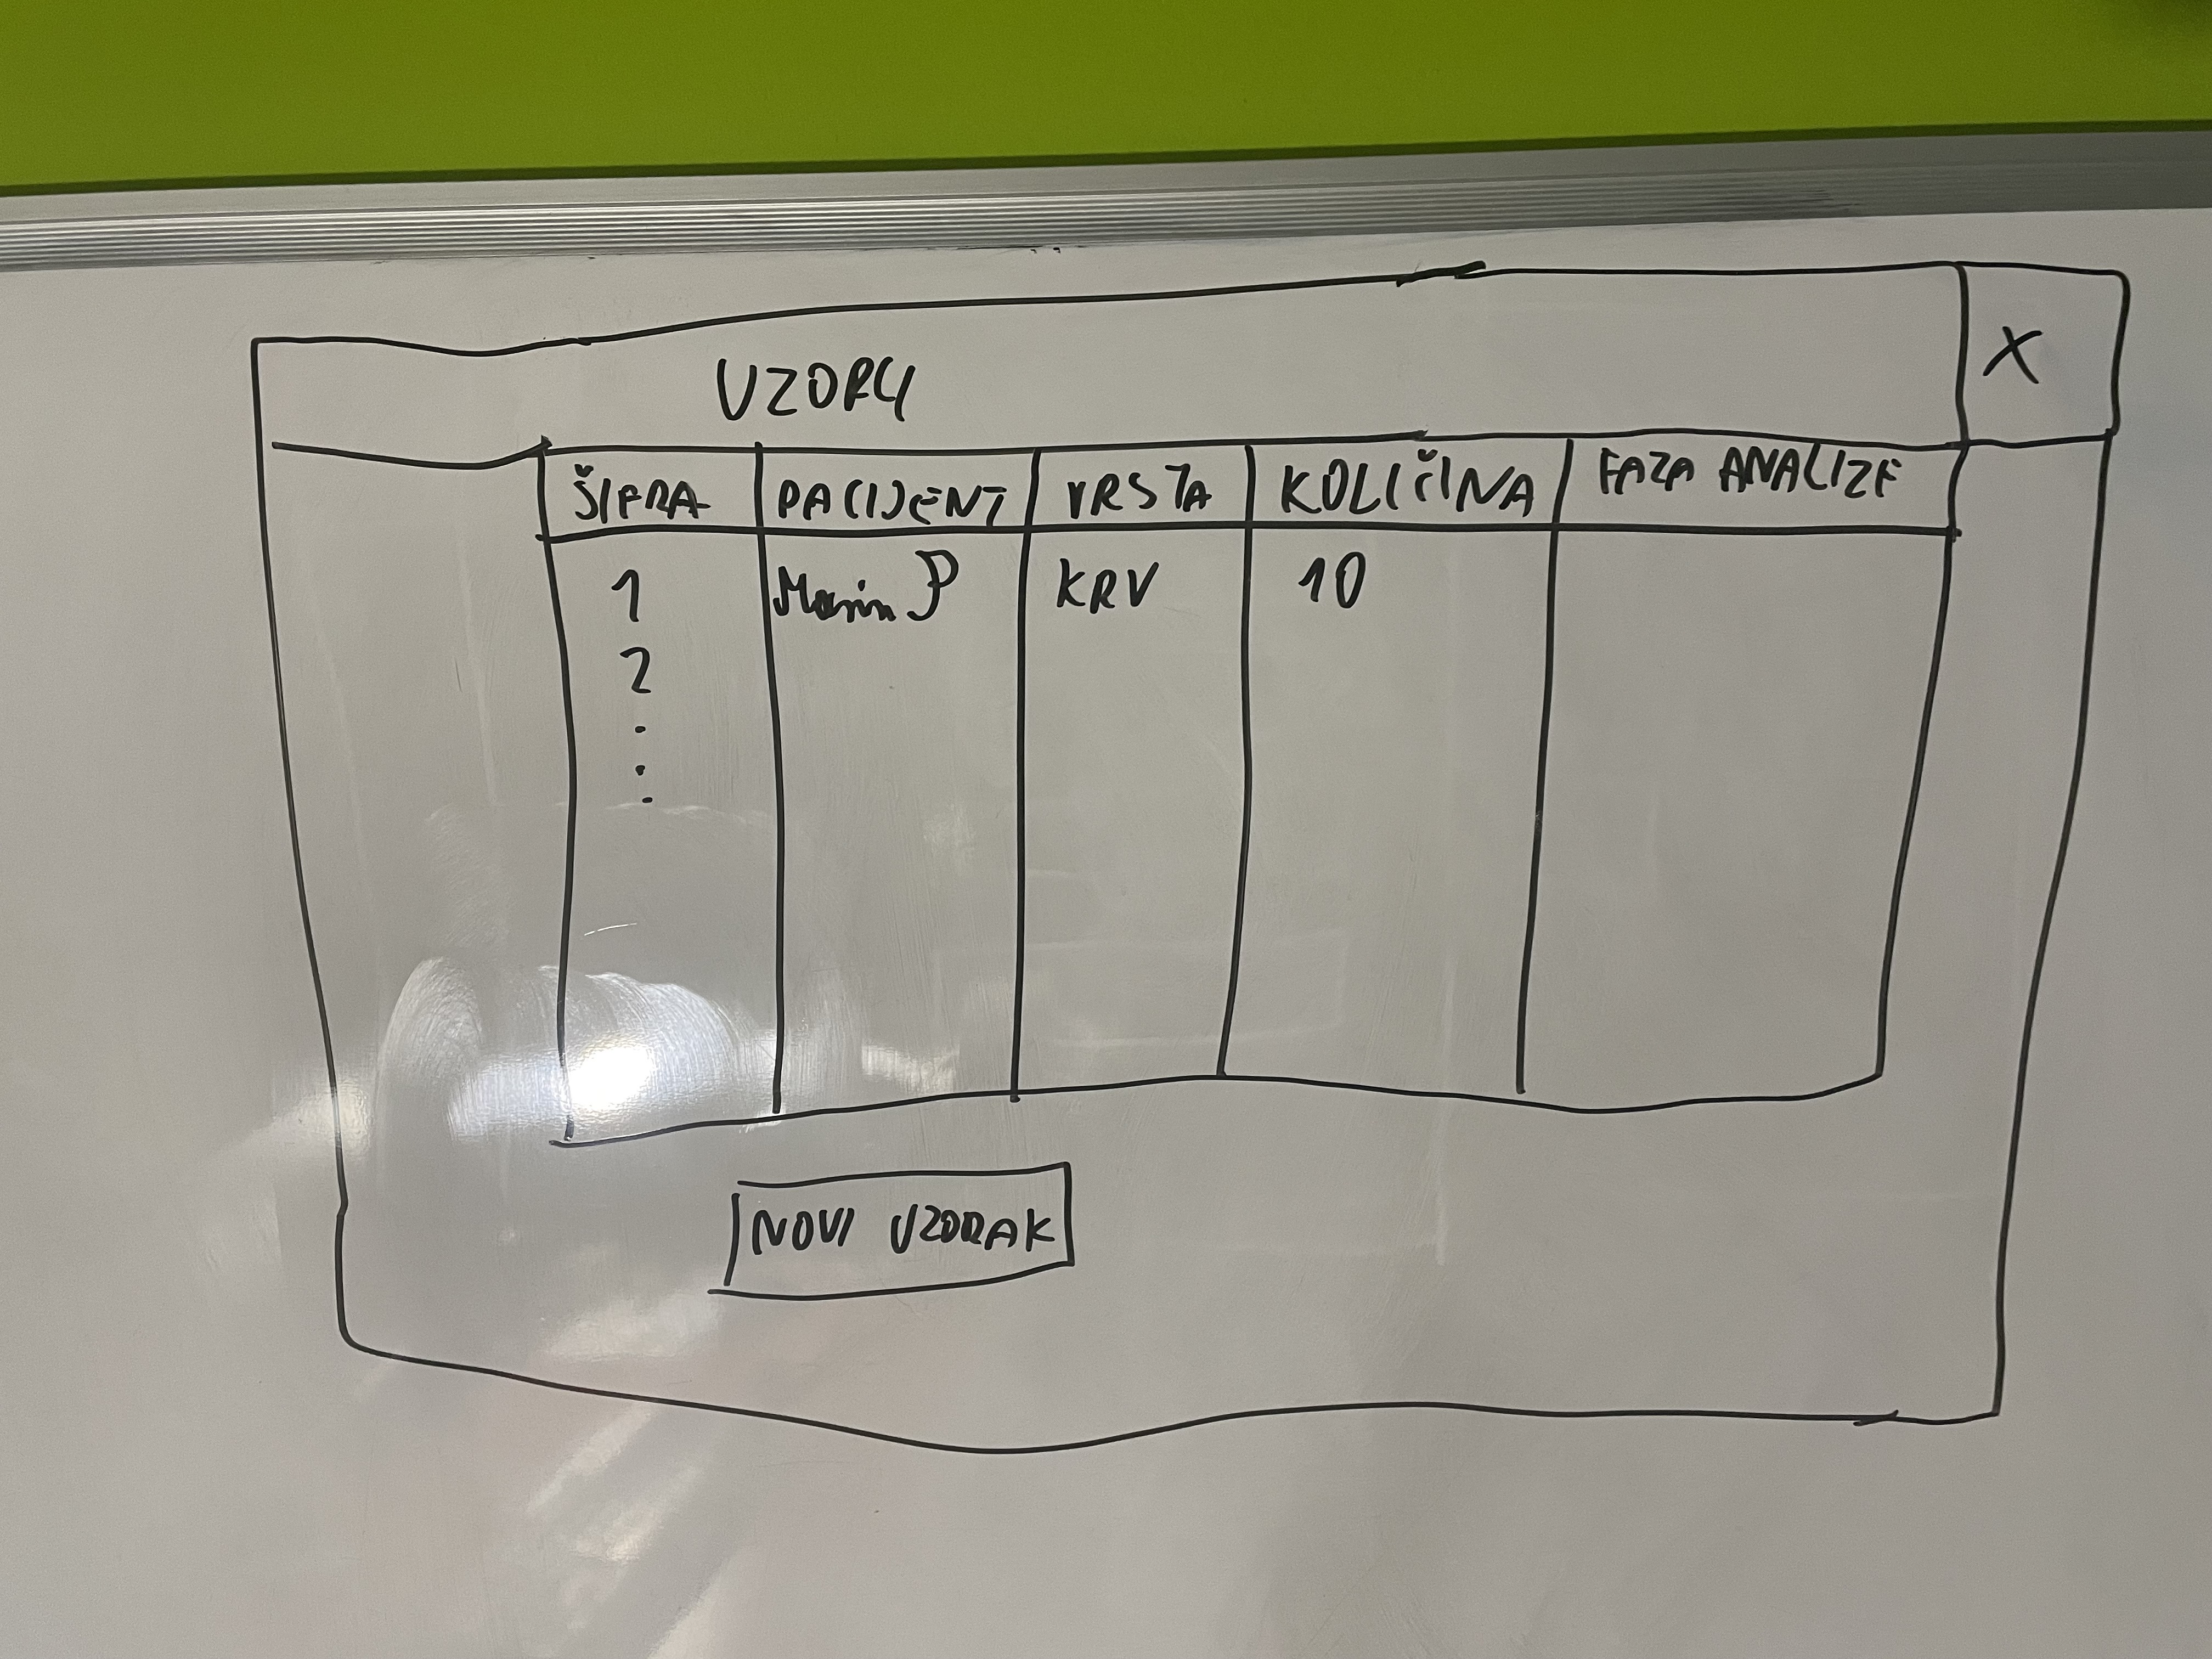 UZORCI
X
ŠIFRA PACIJENT VRSTA KOLIČINA FAZA ANALIZE
1 Marin P KRV 10
2
.
.
.
NOVI UZORAK